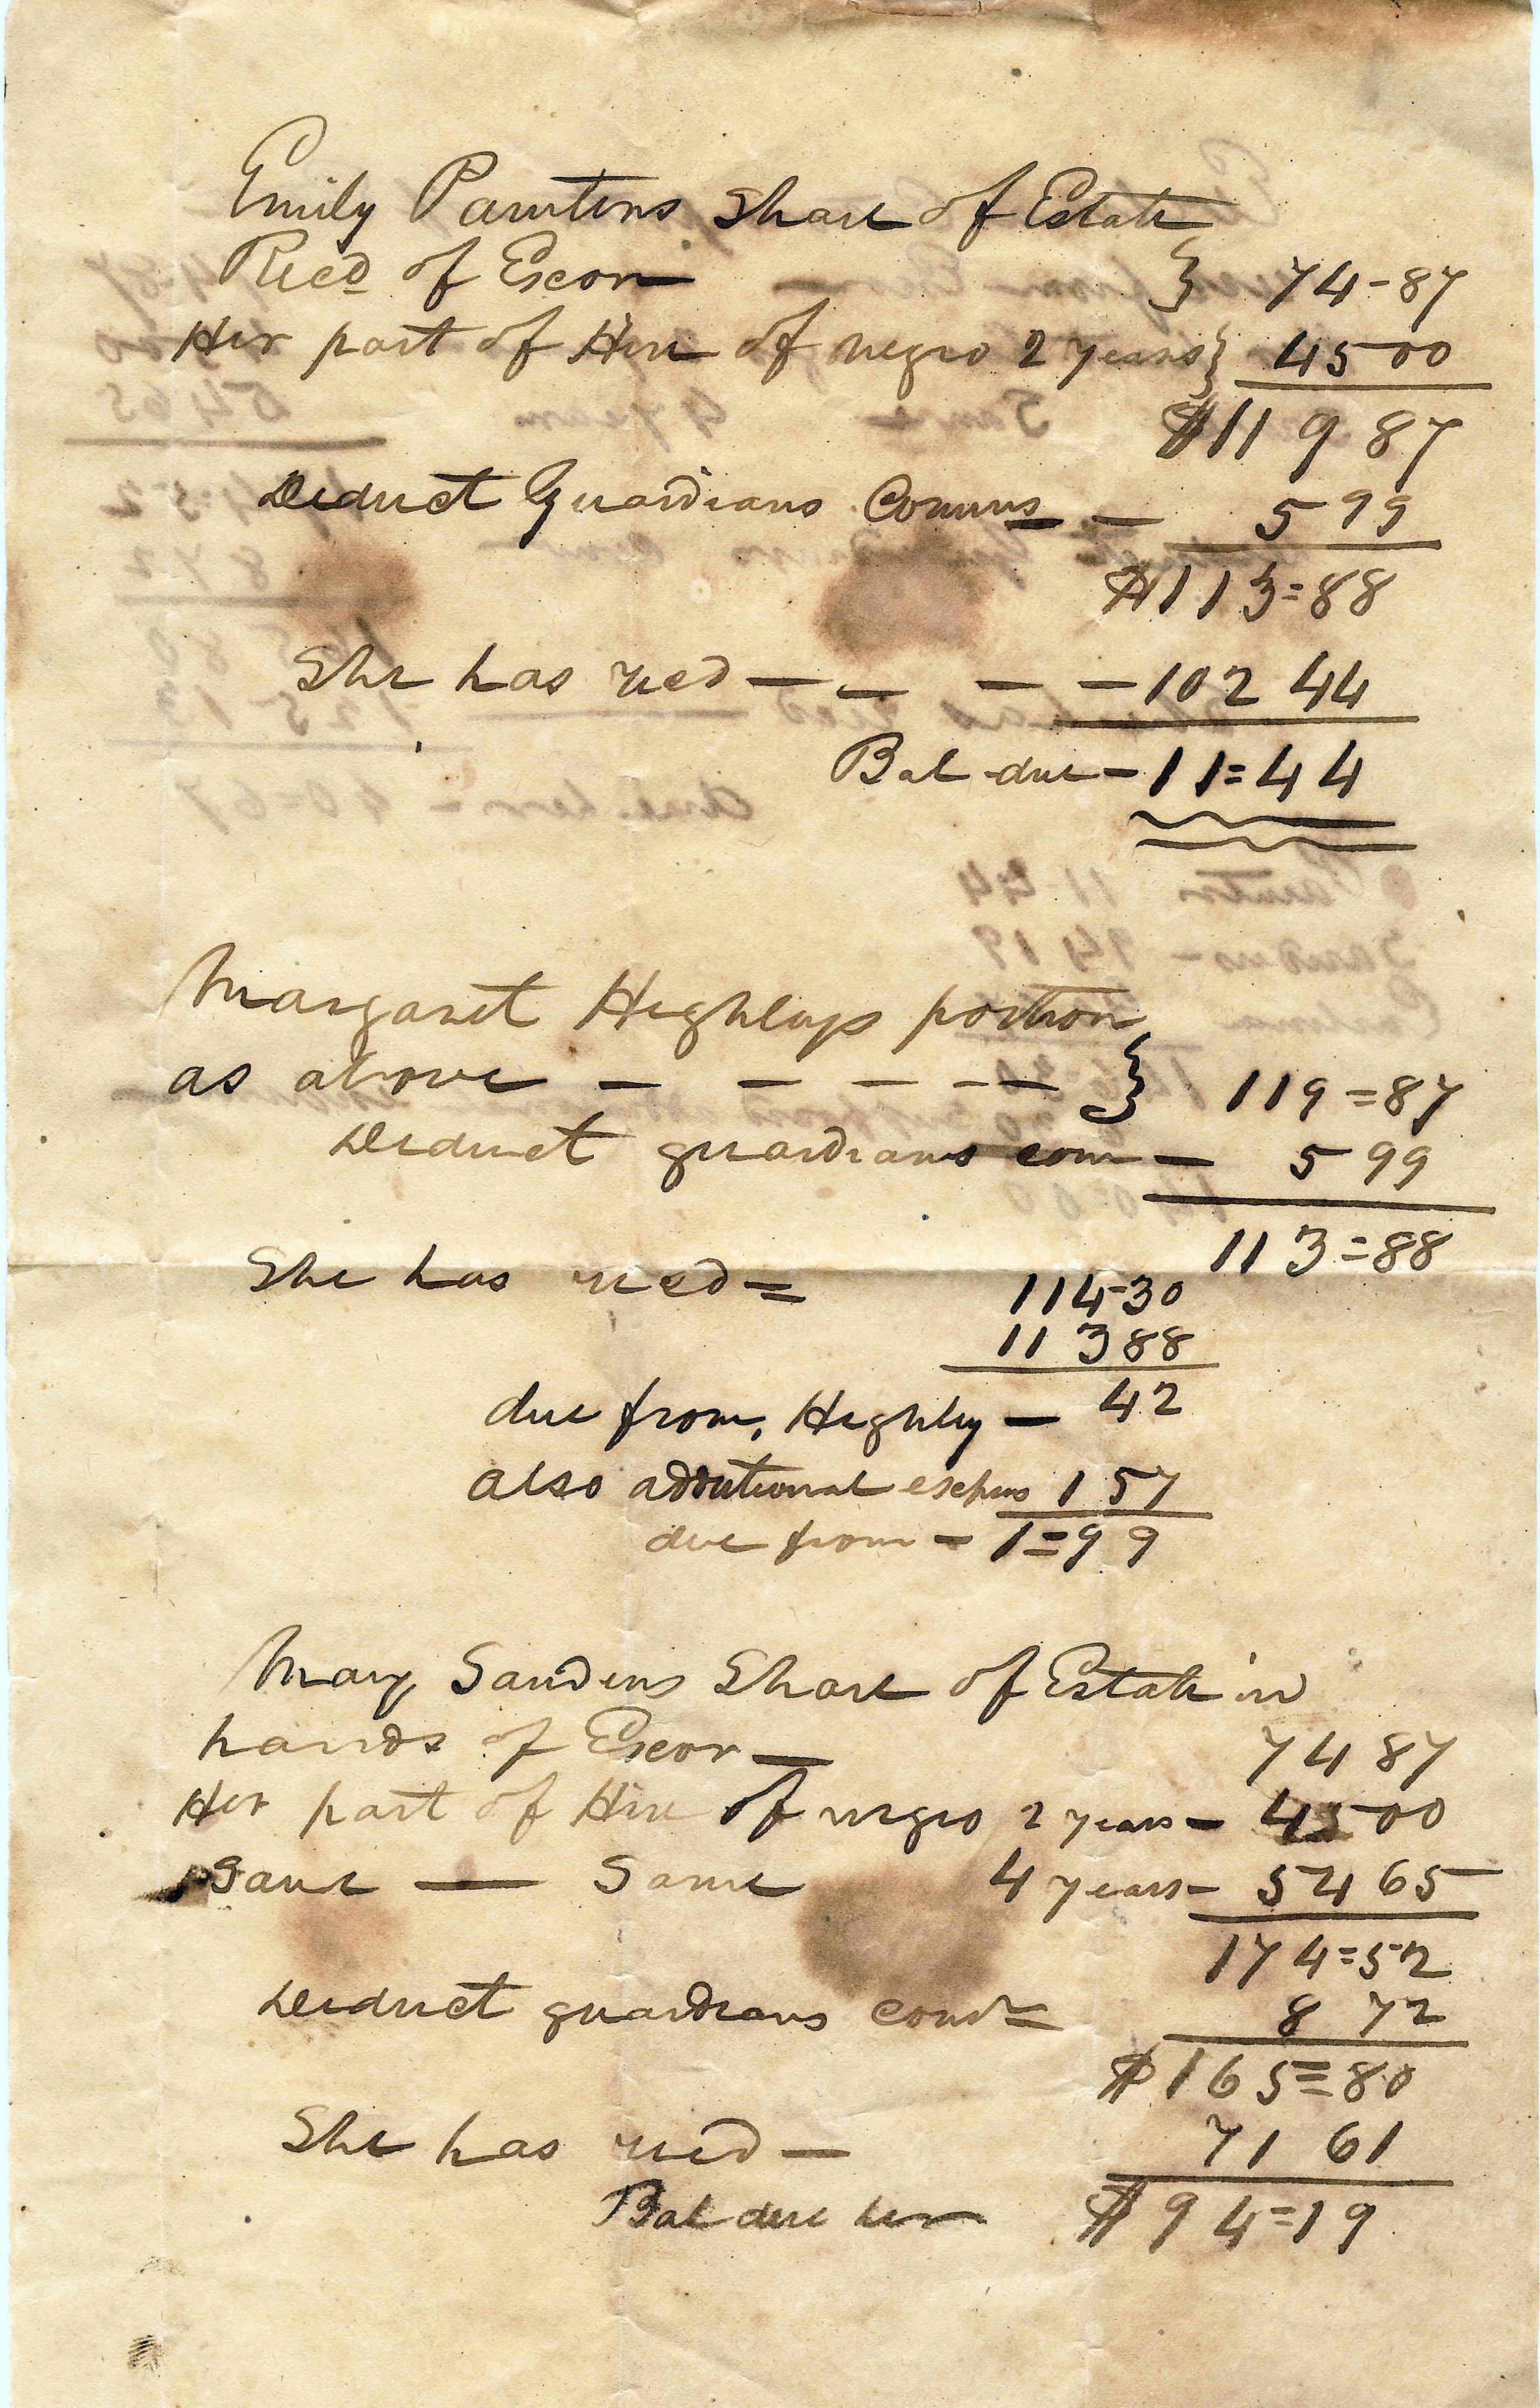 Emily Paintens Share of Estate
Recd of Exeor } 74-87
Her part of Hire of negro 2 years } 45 00
$119 87
Deduct Guardians Comns — 5 99
$113=88
She has recd — — — — 102 44
Bal due — 11=44
Margaret Highleys portion
as above — — — — — } 119=87
Deduct guardians com — 5 99
113=88
She has recd = 114-30
113 88
due from, Highley — 42
also additional expens 1 57
due from — 1=99
Mary Sanders Share of Estate in
hands of Exeor — 74 87
Her part of Hire of negro 2 years — 45 00
Same — Same 4 years — 54 65
174=52
Deduct guardians com = 8 72
$165=80
She has recd — 71 61
Bal due her $94=19